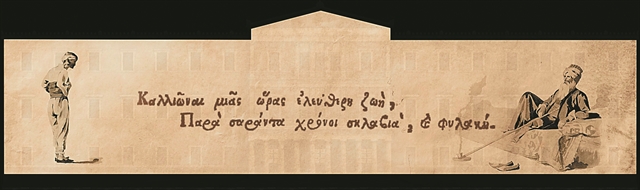 Καλλιῶναι μιᾶς ὥρας ἐλεύθερη ζωὴ,
Παρὰ σαράντα χρόνοι σκλαβιὰ, ϗ φυλακή.